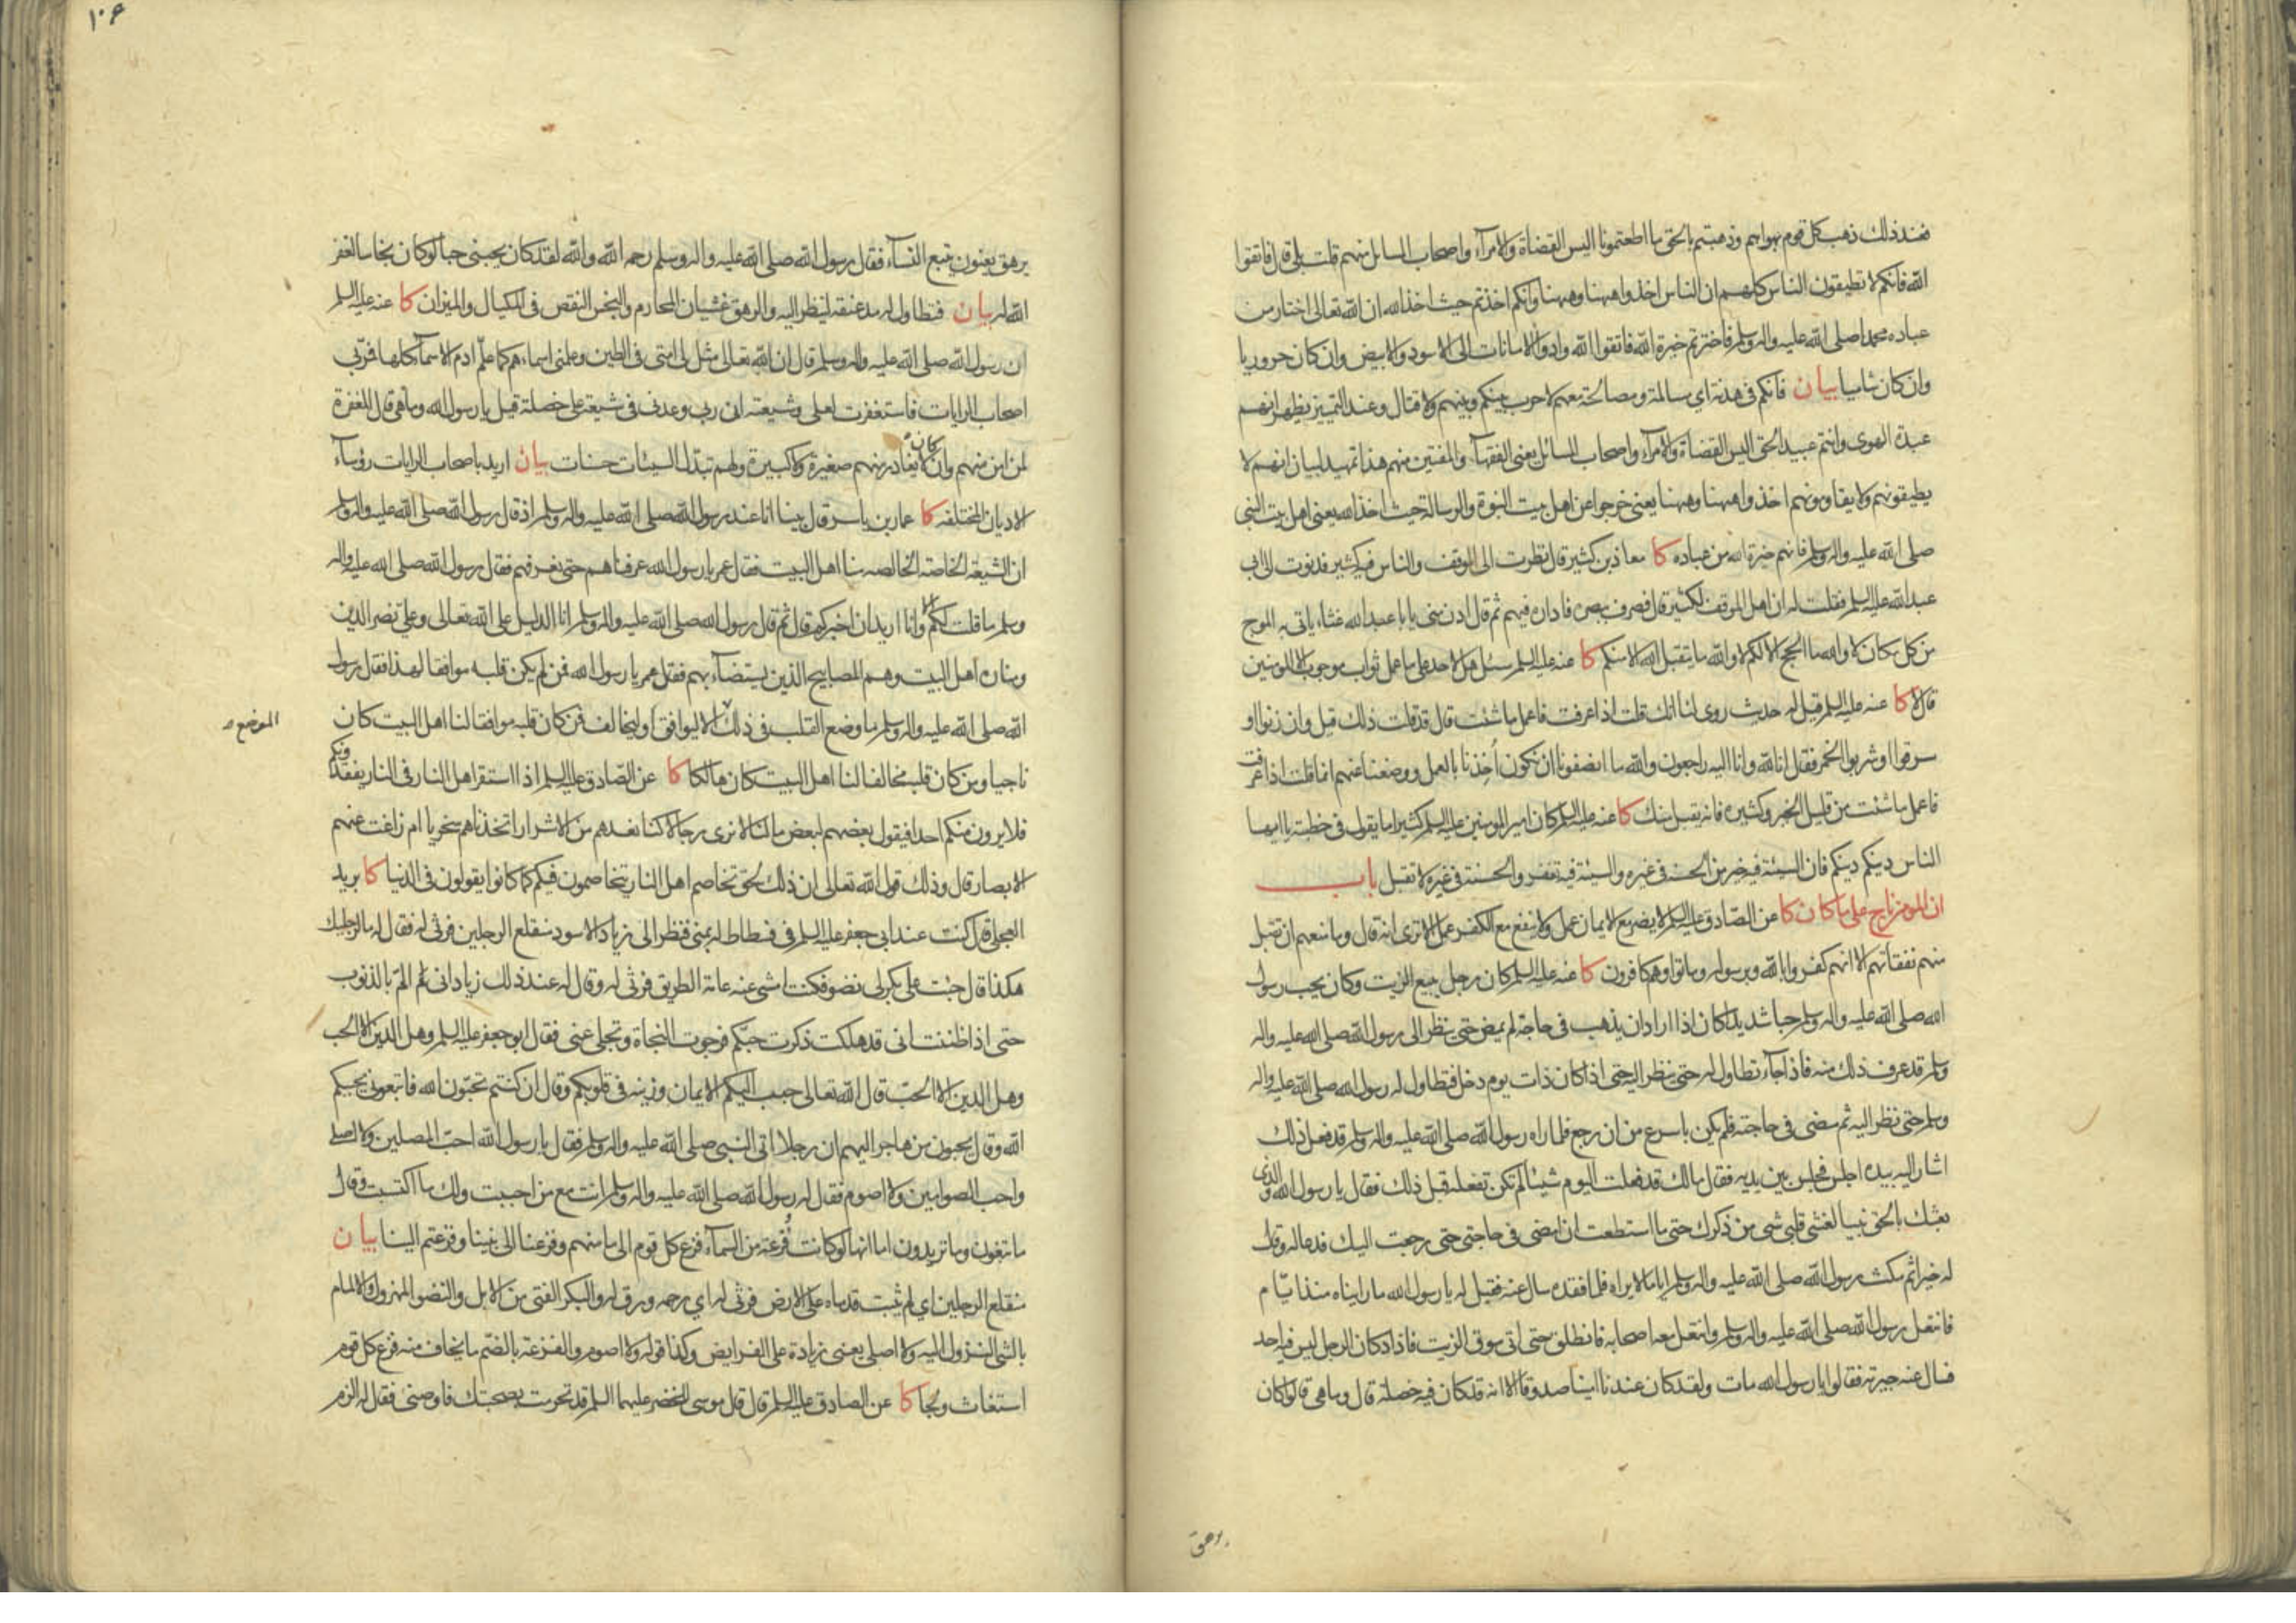 فعند ذلك ذهب كل قوم بهواهم وذهبتم بالحق ما اطعتمونا اليس القضاة والامرآء واصحاب المسائل منهم قلت بلى قال فاتقوا
الله فانكم لا تطيقون الناس كلهم ان الناس اخذوا ههنا وههنا وانكم اخذتم حيث اخذ الله ان الله تعالى اختار من
عباده محمدا صلى الله عليه واله وسلم فاخترتم خيرة الله فاتقوا الله وادوا الامانات الى الاسود والابيض وان كان حروريا
وان كان شاميا بيان فانكم في هدنة اي مسالمة ومصالحة معهم لا حرب بينكم وبينهم ولا قتال وعند التمييز يظهر انهم
عبدة الهوى وانتم عبيد الحق اليس القضاة والامرآء واصحاب المسائل يعني الفقهآء والمفتين منهم هذا تمهيد لبيان انهم لا
يطيقونهم ولا يقاومونهم اخذوا ههنا وههنا يعني خرجوا عن اهل بيت النبوة والرسالة حيث اخذ الله يعني اهل بيت النبي
صلى الله عليه واله وسلم فانهم خيرة الله من عباده كا معاذ بن كثير قال نظرت الى الموقف والناس فيه كثير فدنوت الى ابي
عبد الله عليه السلم فقلت له ان اهل الموقف لكثير قال فصرف ببصره فاداره فيهم ثم قال ادن مني يا با عبد الله غثاء ياتي به الموج
من كل مكان لا والله ما الحج الا لكم لا والله ما يتقبل الله الا منكم كا عنه عليه السلم سئل هل لاحد على ما عمل ثواب موجب الا المومنين
قال لا كا عنه عليه السلم قيل له حديث روى لنا انك قلت اذا عرفت فاعمل ما شئت قال قد قلت ذلك قيل وان زنوا او
سرقوا او شربوا الخمر فقال انا لله وانا اليه راجعون والله ما انصفونا ان نكون أُخِذنا بالعمل ووضع عنهم انما قلت اذا عرفت
فاعمل ما شئت من قليل الخير وكثيره فانه يقبل منك كا عنه عليه السلم كان امير المومنين عليه السلم كثيرا ما يقول في خطبته يا ايها
الناس دينكم دينكم فان السيئة فيه خير من الحسنة في غيره والسيئة فيه تغفر والحسنة في غيره لا تقبل باب
ان المومن ناج على ما كان كا عن الصادق عليه السلم لا يضر مع الايمان عمل ولا ينفع مع الكفر عمل الا ترى انه قال وما منعهم ان تقبل
منهم نفقاتهم الا انهم كفروا بالله وبرسوله وماتوا وهم كافرون كا عنه عليه السلم كان رجل يبيع الزيت وكان يحب رسول
الله صلى الله عليه واله وسلم حبا شديدا كان اذا اراد ان يذهب في حاجة لم يمض حتى ينظر الى رسول الله صلى الله عليه واله
وسلم قد عرف ذلك منه فاذا جآء تطاول له حتى ينظر اليه حتى اذا كان ذات يوم دخل فتطاول له رسول الله صلى الله عليه واله
وسلم حتى نظر اليه ثم مضى في حاجته فلم يكن باسرع من ان رجع فلما راه رسول الله صلى الله عليه واله وسلم قد فعل ذلك
اشار اليه بيده اجلس فجلس بين يديه فقال مالك قد فعلت اليوم شيئا لم تكن تفعله قبل ذلك فقال يا رسول الله والذي
بعثك بالحق نبيا لغشي قلبي شي من ذكرك حتى ما استطعت ان امضي في حاجتي حتى رجعت اليك فدعا له وقال
له خيرا ثم مكث رسول الله صلى الله عليه واله وسلم اياما لا يراه فلما فقده سال عنه فقيل له يا رسول الله ما رايناه منذ ايام
فانتعل رسول الله صلى الله عليه واله وسلم وانتعل معه اصحابه فانطلق حتى اتى سوق الزيت فاذا دكان الرجل ليس فيه احد
فسال عنه جيرته فقالوا يا رسول الله مات ولقد كان عندنا امينا صدوقا الا انه قد كان فيه خصلة قال وما هي قالوا كان
يرهق
١٠۶
يرهق يعنون يتبع النسآء فقال رسول الله صلى الله عليه واله وسلم رحمه الله والله لقد كان يحبني حبا لو كان نخاسا لغفر
الله له بيان فتطاول له مد عنقه لينظر اليه والرهق غشيان المحارم والبخس النقص في المكيال والميزان كا عنه عليه السلم
ان رسول الله صلى الله عليه واله وسلم قال ان الله تعالى مثل لي امتي في الطين وعلمني اسماءهم كما علّم ادم الاسمآء كلها فمرّ بي
اصحاب الرايات فاستغفرت لعلي وشيعته ان ربي وعدني في شيعة علي خصلة قيل يا رسول الله وما هي قال المغفرة
لمن امن منهم وان كان لا يغادر منهم صغيرة ولا كبيرة ولهم تبدّل السيئات حسنات بيان اريد باصحاب الرايات رؤسآء
الاديان المختلفة كا عمار بن ياسر قال بينا انا عند رسول الله صلى الله عليه واله وسلم اذ قال رسول الله صلى الله عليه واله وسلم
ان الشيعة الخاصة الخالصه منا اهل البيت فقال عمر يا رسول الله عرفناهم حتى نعرفهم فقال رسول الله صلى الله عليه واله
وسلم ما قلت لكم الا وانا اريد ان اخبركم قال ثم قال رسول الله صلى الله عليه واله وسلم انا الدليل على الله تعالى وعلي نصر الدين
ومناره اهل البيت وهم المصابيح الذين يستضآء بهم فقال عمر يا رسول الله فمن لم يكن قلبه موافقا لهذا فقال رسول
الله صلى الله عليه واله وسلم ما وضع القلب في ذلك الا ليوافق او ليخالف فمن كان قلبه موافقا لنا اهل البيت كان
الموضع
ناجيا ومن كان قلبه مخالفا لنا اهل البيت كان هالكا كا عن الصادق عليه السلم اذا استقر اهل النار في النار يفقدونكم
فلا يرون منكم احدا فيقول بعضهم لبعض ما لنا لا نرى رجالا كنا نعدهم من الاشرار اتخذناهم سخريا ام زاغت عنهم
الابصار قال وذلك قول الله تعالى ان ذلك لحق تخاصم اهل النار يتخاصمون فيكم كما كانوا يقولون في الدنيا كا بريد
العجلي قال كنت عند ابي جعفر عليه السلم في فسطاط له بمنى فنظر الى زياد الاسود منقلع الرجلين فرثى له فقال له ما لرجليك
هكذا قال جئت على بكر لي نضو فكنت امشي عنه عامة الطريق فرثى له وقال له عند ذلك زياد اني الم بالذنوب
حتى اذا ظننت اني قد هلكت ذكرت حبكم فرجوت النجاة وتجلى عني فقال ابو جعفر عليه السلم وهل الدين الا الحب
وهل الدين الا الحب قال الله تعالى حبب اليكم الايمان وزينه في قلوبكم وقال ان كنتم تحبّون الله فاتبعوني يحببكم
الله وقال يحبون من هاجر اليهم ان رجلا اتى النبي صلى الله عليه واله وسلم فقال يا رسول الله احبّ المصلين ولا اصلي
واحب الصوامين ولا اصوم فقال له رسول الله صلى الله عليه واله وسلم انت مع من احببت ولك ما اكتسبت وقال
ما تبغون وما تريدون اما انها لو كانت فُزعة من السمآء فزع كل قوم الى مامنهم وفزعنا الى نبينا وفزعتم الينا بيان
منقلع الرجلين اي لم تثبت قدماه على الارض فرثى له اي رحمه ورق له والبكر الفتي من الابل والنضو المهزول والالمام
بالشي النزول اليه ولا اصلي يعني زيادة على الفرايض وكذا قوله ولا اصوم والفزعة بالضم ما يخاف منه فزع كل قوم
استغاث ولجا كا عن الصادق عليه السلم قال قال موسى للخضر عليهما السلم قد تحرمت بصحبتك فاوصني فقال له الزم